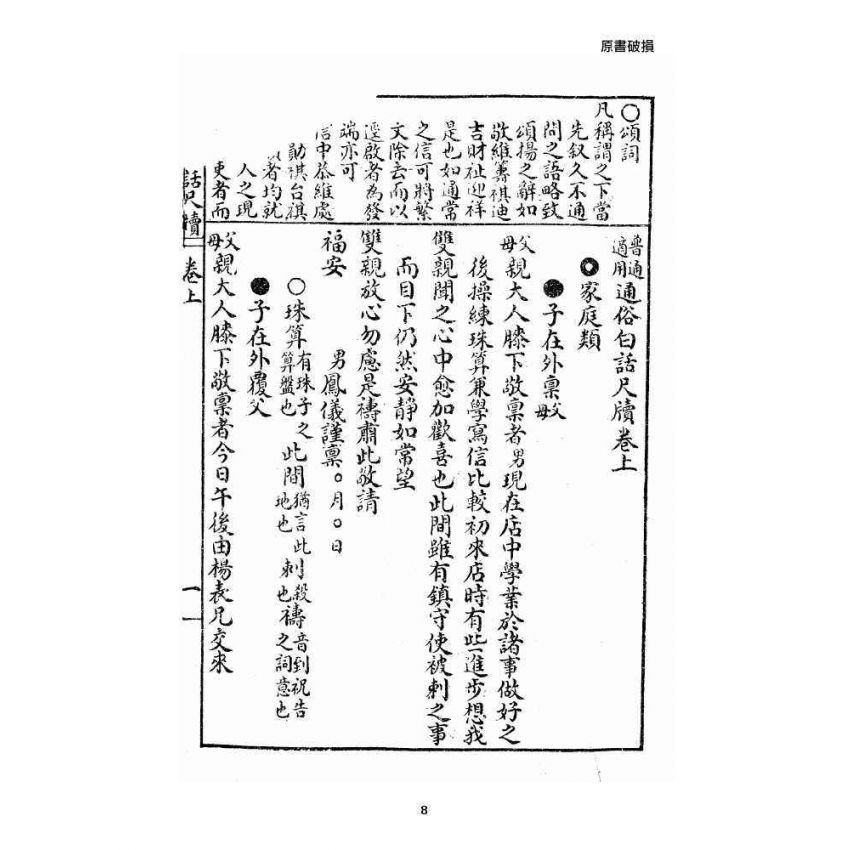 原書破損
○頌詞
凡稱謂之下當
先叙久不通
問之語略致
頌揚之辭如
敬維籌祺迪
吉財祉迎祥
是也如通常
之信可將繁
文除去而以
逕啟者為發
端亦可
信中恭維處
勛祺台祺
者均就
人之現
吏者而
普通適用通俗白話尺牘卷上
家庭類
●子在外稟父母
父母親大人膝下敬稟者男現在店中學業於諸事做好之
後操練珠算兼學寫信比較初來店時有些進步想我
雙親聞之心中愈加歡喜也此間雖有鎮守使被刺之事
而目下仍然安靜如常望
雙親放心勿慮是禱肅此敬請
福安 男鳳儀謹稟○月○日
○珠算有珠子之算盤也 此間猶言此地也 刺殺也 禱音到祝告之詞意也
●子在外覆父
父母親大人膝下敬稟者今日午後由楊表兄交來
話尺牘 卷上 一
8